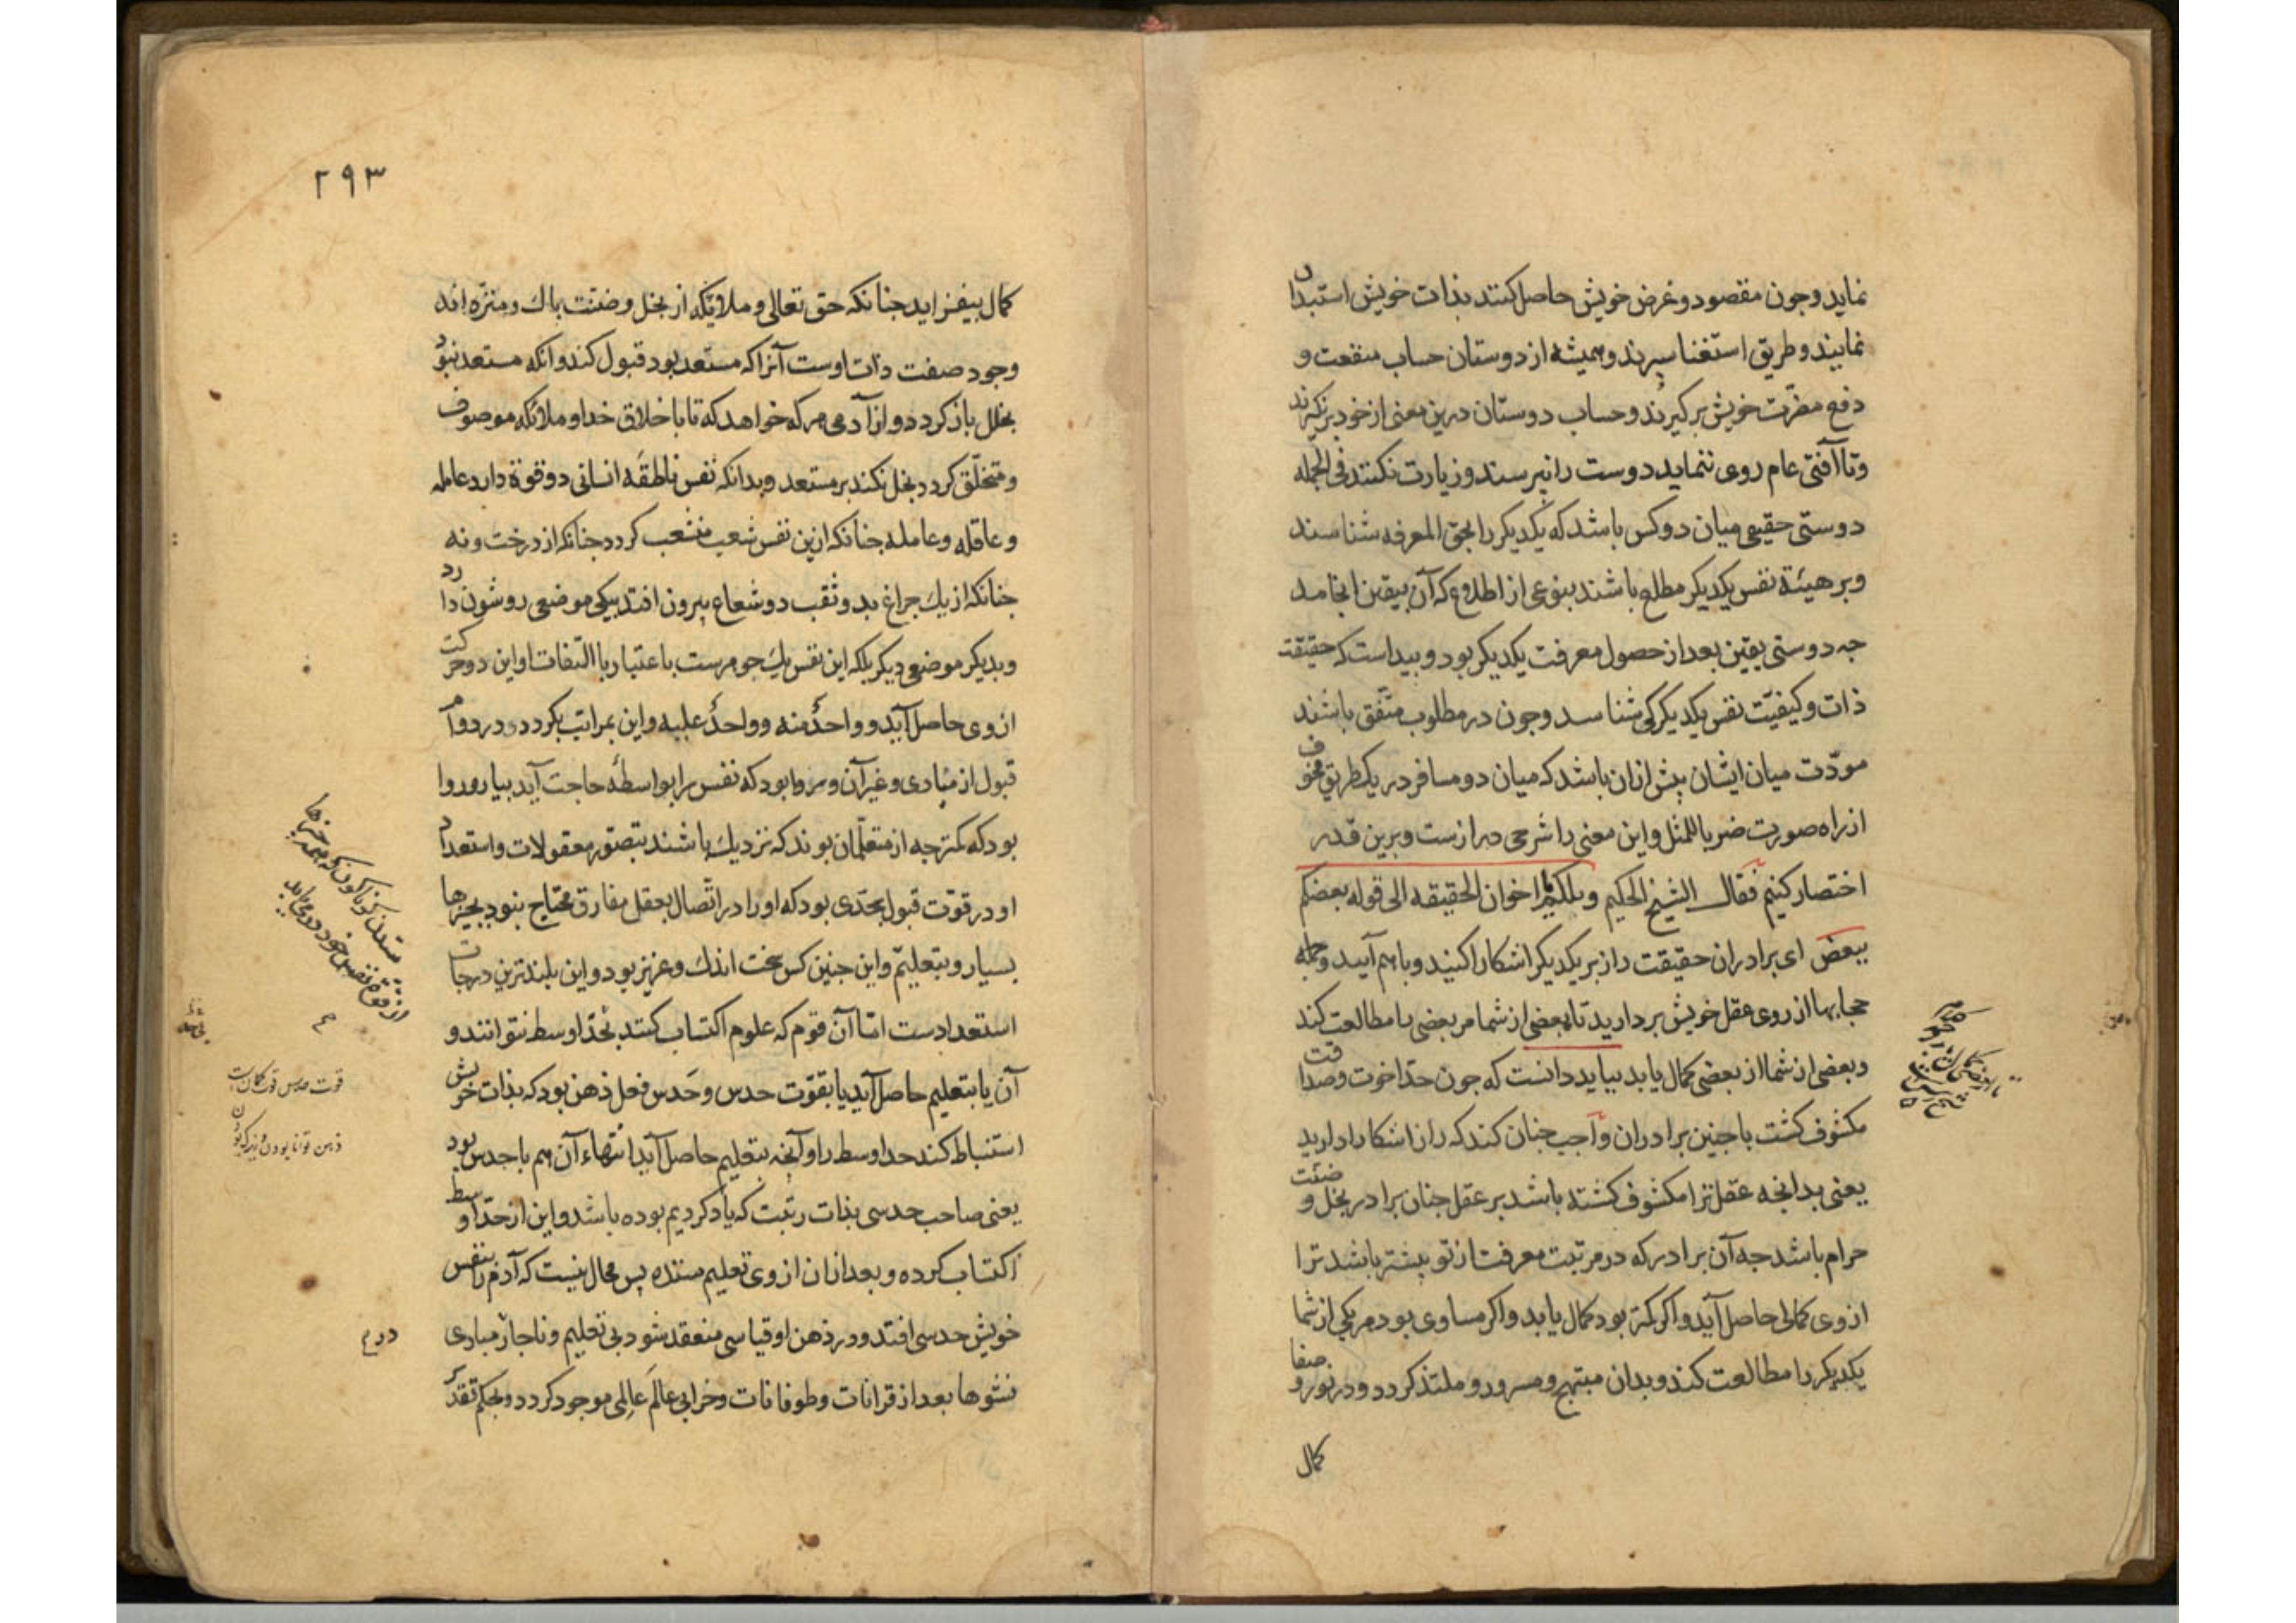 نماید وجون مقصود وغرض خویش حاصل کنند بذات خویش استبداد
نمایند وطریق استغنا سپرند وهمیشه از دوستان حساب منفعت و
دفع مضرّت خویش برگیرند وحساب دوستان درین معنی از خود برنگیرند
وتا آفتی عام روی ننماید دوست را نپرسند وزیارت نکنند فی الجمله
دوستی حقیقی میان دو کس باشد که یکدیکر را بحق المعرفه شناسند
وبر هیئة نفس یکدیکر مطلع باشند بنوعی از اطلاع که آن بیقین انجامد
جه دوستی یقین بعد از حصول معرفت یکدیکر بود وپیداست که حقیقت
ذات وکیفیّت نفس یکدیکر کی شناسد وجون در مطلوب متّفق باشند
مودّت میان ایشان بیش ازان باشد که میان دو مسافر در یک طریق مخوف
از راه صورت ضربا للمثل واین معنی را شرحی درازست وبرین قدر
اختصار کنیم فقال الشیخ الحکیم ویلکم اخوان الحقیقه الی قوله بعضکم
ببعض ای برادران حقیقت راز بر یکدیکر اشکارا کنید وباهم آیید وجمله
حجابها از روی عقل خویش بردارید تا بعضی از شما مر بعضی را مطالعت کند
وبعضی از شما از بعضی کمال یابد بباید دانست که جون حدّ اخوت وصداقت
مکشوف کشت با جنین برادران واجب جنان کند که راز اشکارا دارید
یعنی بدانجه عقل ترا مکشوف کشته باشد بر عقل جنان برادر بخل وضنّت
حرام باشد جه آن برادر که در مرتبت معرفت از تو بیشتر باشد ترا
از وی کمالی حاصل آید واکر کمتر بود کمال یابد واکر مساوی بود هر یکی از شما
یکدیکر را مطالعت کند وبدان مبتهج ومسرور وملتذ کردد ودر نور وصفا
کمال
۲۹۳
کمال بیفزاید جنانکه حق تعالی وملایکه از بخل وضنّت پاک ومنزّه اند
وجود صفت ذات اوست آنرا که مستعد بود قبول کند وانکه مستعد نبود
بخلل باز کردد واز آدمی هر که خواهد که تا باخلاق خدا وملائکه موصوف
ومتخلّق کردد بخل نکند بر مستعد وبدانکه نفس ناطقه انسانی دو قوة دارد عامله
وعاقله وعامله جنانکه ازین نفس شعب منشعب کردد جنانکه از درخت ونه
جنانکه از یک جراغ بدو ثقب دو شعاع بیرون افتد بیکی موضعی روشون دارد
وبدیکر موضعی دیکر بلکه این نفس یک جوهرست باعتبار با التفات او این دو حرکت
از وی حاصل آید وواحدٌ منه وواحدٌ علیه واین بمراتب بکردد ودر دوام
قبول از مبادی وغیر آن وروا بود که نفس را بواسطه حاجت آید بیاروروا
بود که کمتر جه از متعلّمان بوند که نزدیک باشند بتصوّر معقولات واستعداد
او در قوّت قبول بحدّی بود که او را در اتّصال بعقل مفارق محتاج نبود بجیزها
بسیار وبتعلیمّ واین جنین کس سخت اندک وعزیز بود واین بلندترین درجات
استعدادست امّا آن قوم که علوم اکتساب کنند بحدّ اوسط نتوانند و
آن یا بتعلیم حاصل آید یا بقوّت حدس وحَدس فعل ذهن بود که بذات خویش
استنباط کند حد اوسط را وآنجه بتعلیم حاصل آید انتهاء آن هم با حدس بود
یعنی صاحب حدسی بذات رتبت که یاد کردیم بوده باشد واین از حدّ اوسط
اکتساب کرده وبعد ازان از وی تعلیم ستده پس محال نیست که آدم را بنفس
خویش حدسی افتد ودر ذهن او قیاسی منعقد شود بی تعلیم وناجار مبادی
نشوها بعد از قرانات وطوفانات وخرابی عالَم عالِمی موجود کردد وبحکم تقدیر
قوت حدس قوت کمان است
ذهن توانا بودن وزیرک بودن